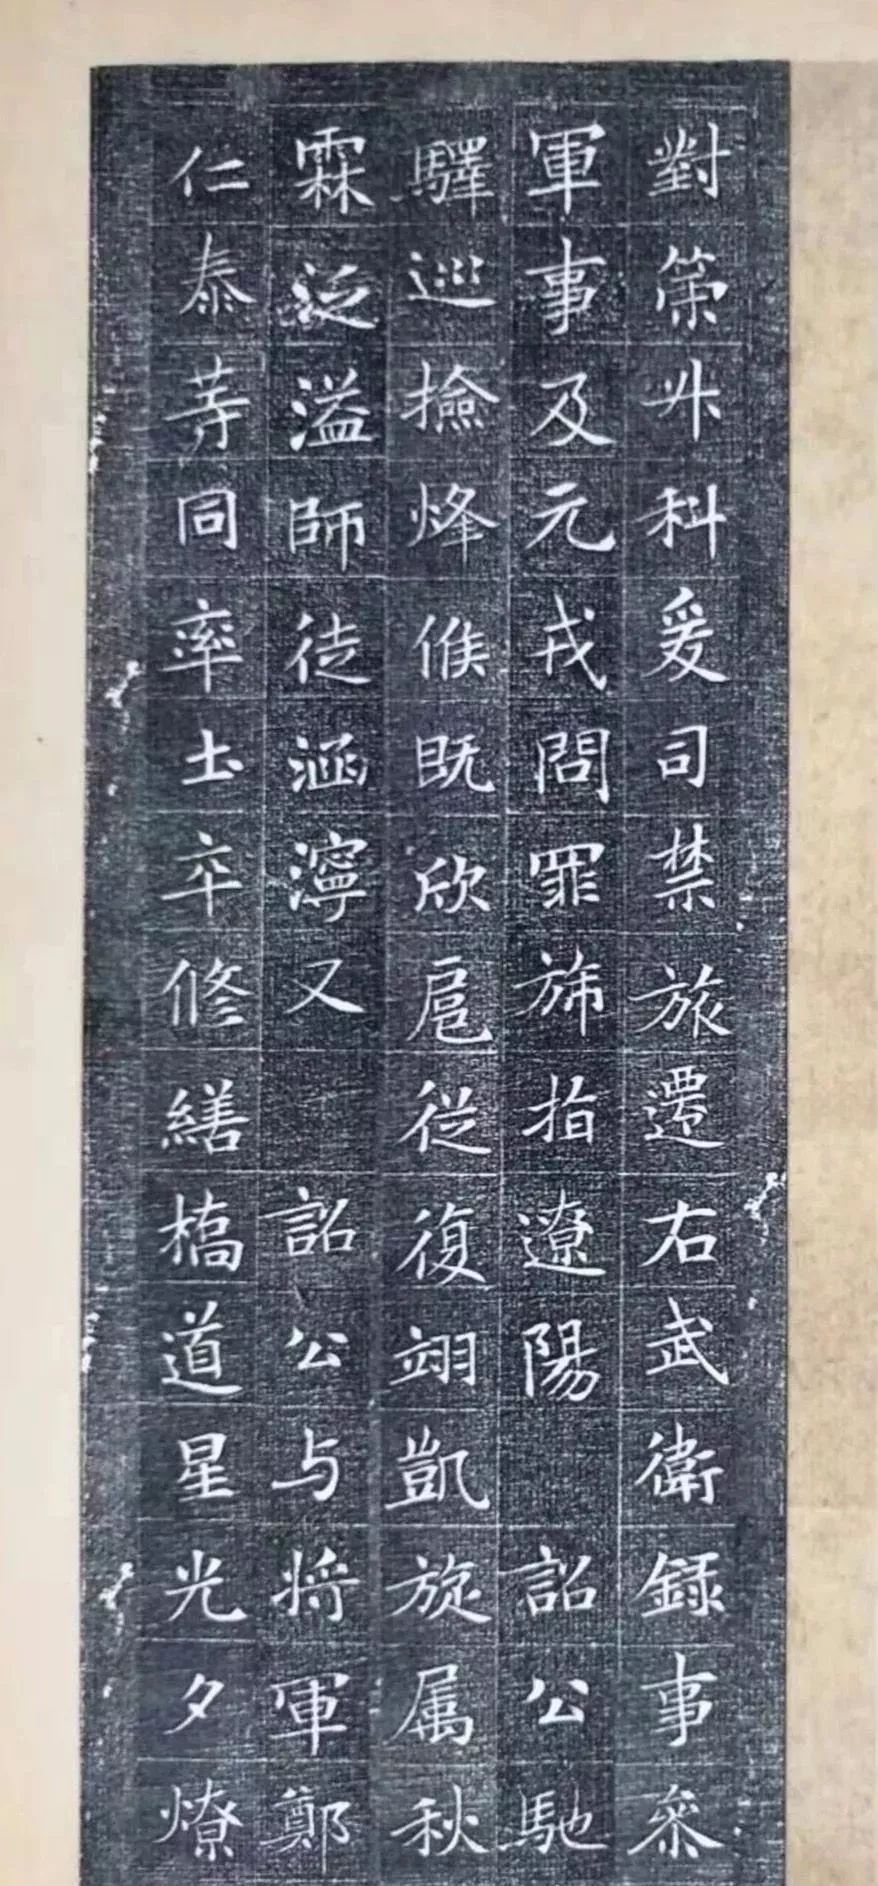 對策升科爰司禁旅遷右武衛録事叅
軍事及元戎問罪旆指遼陽 詔公馳
驛巡撿烽候既欣扈從復翊凱旋属秋
霖泛溢師徒涵濘又 詔公与将軍鄭
仁泰等同率土卒修繕橋道星光夕燎